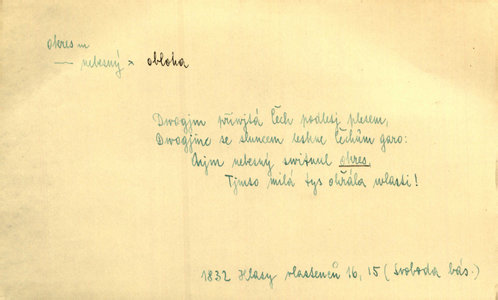 okres m
— nebesný × obloha
Dwogjm přiwjtá Čech podletj plesem,
Dwogjmc se sluncem leskne Čechům garo:
Anjm nebesný switnul okres.
Tjmto milá tys ohřála wlasti!
1832 Hlasy vlastenců 16, 15 (Svoboda bás.)